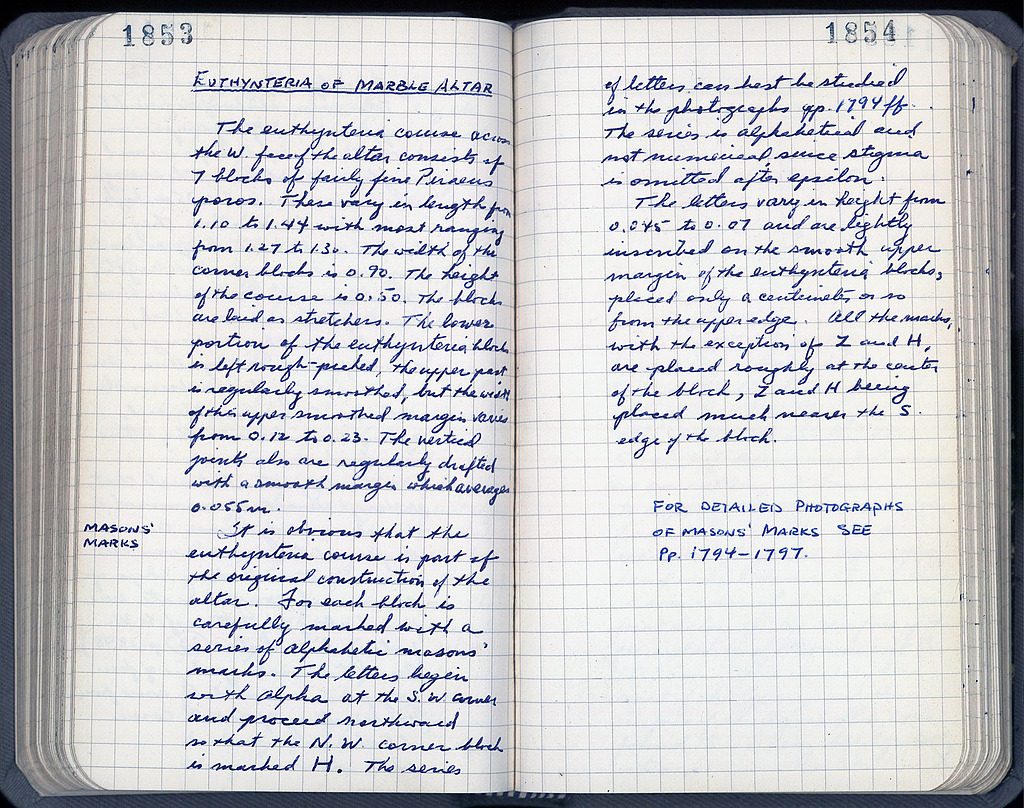 1853
EUTHYNTERIA OF MARBLE ALTAR
The euthynteria course across
the W. face of the altar consists of
7 blocks of fairly fine Piraeus
poros. These vary in length from
1.10 to 1.44 with most ranging
from 1.27 to 1.30. The width of the
corner blocks is 0.90. The height
of the course is 0.50. The blocks
are laid as stretchers. The lower
portion of the euthynteria blocks
is left rough-picked, the upper part
is regularly smoothed, but the width
of this upper smoothed margin varies
from 0.12 to 0.23. The vertical
joints also are regularly drafted
with a smooth margin which averages
0.055 m.
MASONS'
MARKS
It is obvious that the
euthynteria course is part of
the original construction of the
altar. For each block is
carefully marked with a
series of alphabetic masons'
marks. The letters begin
with alpha at the S.W. corner
and proceed northward
so that the N.W. corner block
is marked H. The series
1854
of letters can best be studied
in the photographs pp. 1794 ff.
The series is alphabetical and
not numerical since stigma
is omitted after epsilon.
The letters vary in height from
0.045 to 0.07 and are lightly
inscribed on the smooth upper
margin of the euthynteria blocks,
placed only a centimeter or so
from the upper edge. All the marks,
with the exception of Z and H,
are placed roughly at the center
of the block, Z and H being
placed much nearer the S.
edge of the block.
FOR DETAILED PHOTOGRAPHS
OF MASONS' MARKS SEE
Pp. 1794-1797.